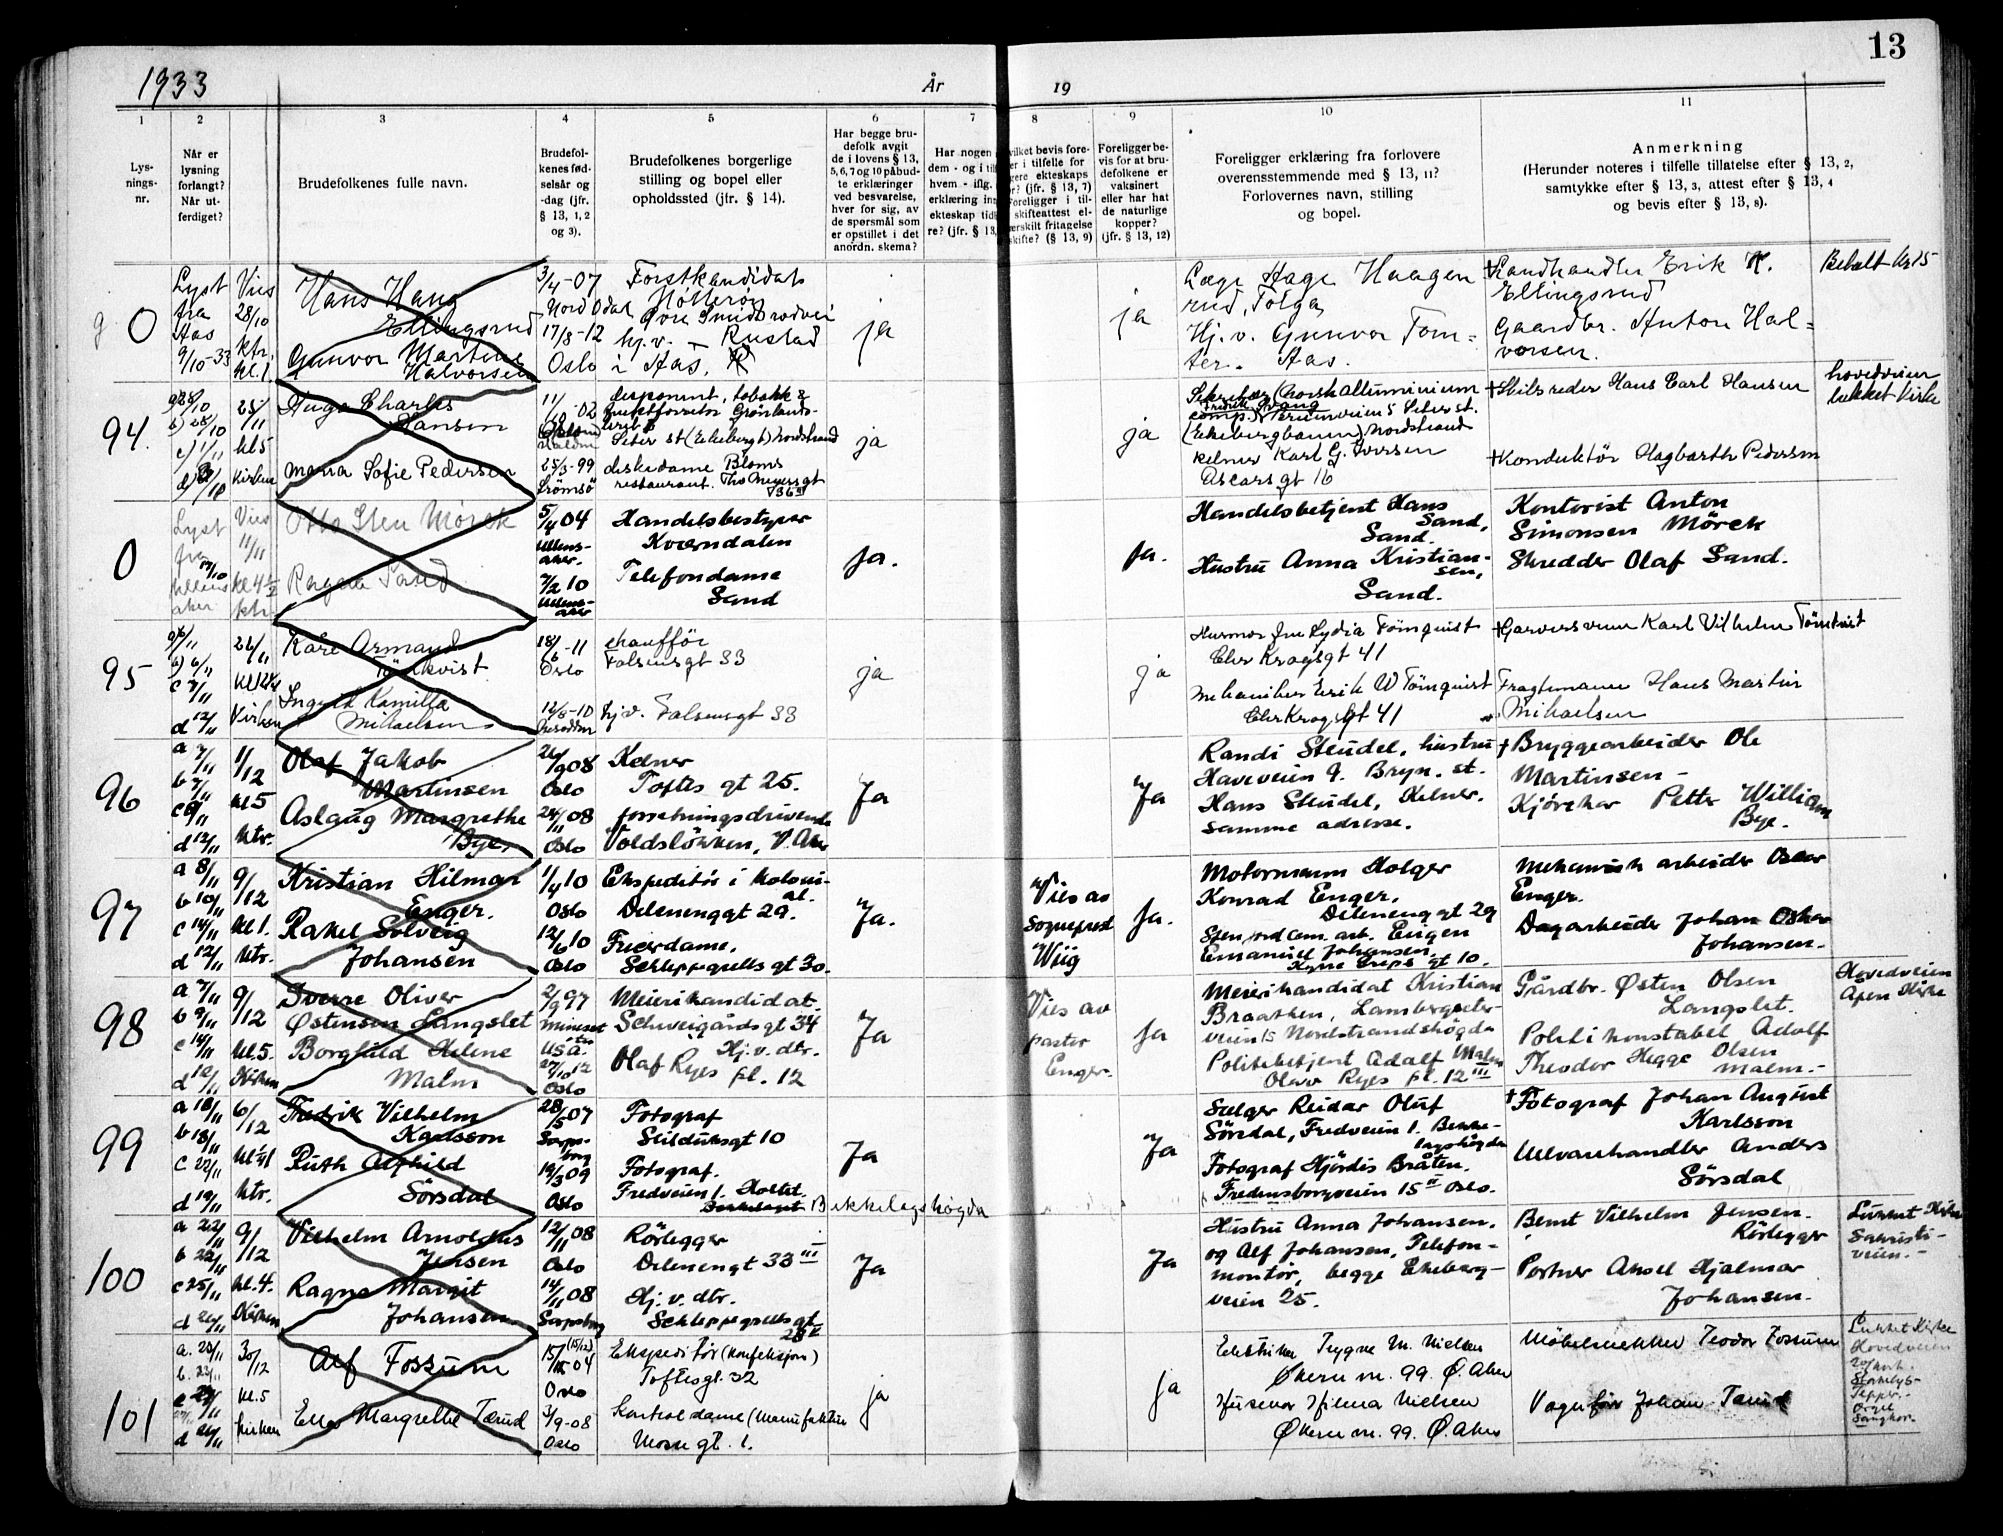 1933
År
19
13
1
2
3
4
5
6
7
8
9
10
11
Lys-
nings-
nr.
Når er
lysning
forlangt?
Når ut-
ferdiget?
Brudefolkenes fulle navn.
Brudefol-
kenes fød-
selsår og
-dag (jfr.
§ 13, 1, 2
og 3).
Brudefolkenes borgerlige
stilling og bopel eller
opholdssted (jfr. § 14).
Har begge bru-
defolk avgit
de i lovens § 13,
5, 6, 7 og 10 påbud-
te erklæringer
ved besvarelse,
hver for sig, av
de spørsmål som
er opstillet i det
anordn. skema?
Har nogen
dem - og i til
hvem - iflg.
erklæring inn
ekteskap tid
re? (jfr. § 13,
vilket bevis fore-
er i tilfelle for
gere ekteskaps
r? (jfr. § 13, 7)
Foreligger i til-
skifteattest el-
ærskilt fritagelse
skifte? (§ 13, 9)
Foreligger be-
vis for at bru-
defolkene er
vaksinert
eller har hat
de naturlige
kopper?
(jfr. § 13, 12)
Foreligger erklæring fra forlovere
overensstemmende med § 13, 11?
Forlovernes navn, stilling
og bopel.
Anmerkning
(Herunder noteres i tilfelle tillatelse efter § 13, 2,
samtykke efter § 13, 3, attest efter § 13, 4
og bevis efter § 13, 8).
0
Lyst
fra
Aas
9/10-33
Vies
28/10
ktr.
kl. 1
Hans Haug
Ellingsrud
Gunvor Martine
Halvorsen
3/4-07
Nord Odal
17/8-12
Oslo
Forstkandidat
hj. v. – Rustad
i Aas.
ja
ja
Læge Aage Haagen
rud, Tolga
Hj. v. Gunvor Tom-
ter. Aas.
+Landhandler Erik K.
Ellingsrud
Gaardbr. Anton Hal-
vorsen.
94.
25/11
kl 5
Kirken
Hugo Charles
Hansen
Maria Sofie Pedersen
25/3-99
disponent, tobakk &
Seter st (Ekeberg) Nordstrand
diskedame Bloms
restaurant. Ths Meyersgt
ja
ja
Nordstrand
Kelner Karl G. Iversen
Oscarsgt 16
+Skibsreder Hans Carl Hansen
+Konduktör Hagbarth Pedersen
hovedveien
lukket kirke
0
Lyst
fra
17/10
Ullens
aker
Vies
11/11
kl 4 1/2
ktr.
Otto Sten Mörck
Ragna Sand
5/4 04
Ullens-
aker.
7/2 10
Ullens-
aker
Handelsbestyrer
Kværndalen
Telefondame
Sand
Ja.
Ja.
Handelsbetjent Hans
Sand,
Sand.
Hustru Anna Kristian-
sen,
Sand.
Kontorist Anton
Simonsen Mörck
Skredder Olaf Sand.
95
Kirken
Kåre Armand
Törnkvist
Ingrid Kamilla
Mikaelsen
18/6-11
Oslo
12/8-10
chaufför
Falsensgt 33
hj v. Falsensgt 33
ja
ja
Chr Kroghsgt 41
Mekaniker Erik W Törnquist
Chr Kroghsgt 41
+Garversvenn Karl Vilhelm Törnkvist
Fragtemann Hans Martin
Mikaelsen
96
a 7/11
b 7/11
c 9/11
d 12/11
1/12
kl 5
ktr.
Olaf Jakob
Martinsen
Aslaug Margrethe
Bye,
26/9 08
Oslo
24/11 08
Oslo
Kelner
Toftes gt 25.
forretningsdrivende
Voldslökken, V. Aker
Ja
Ja
Randi Steudel, hustru
Haveveien 9. Bryn. st.
Hans Steudel, Kelner.
samme adresse.
+Bryggearbeider Ole
Martinsen –
Kjörekar Petter William
Bye.
97
a 8/11
b 10/11
c 14/11
d 12/11
9/12
kl 1.
ktr.
Kristian Hilmar
Enger.
Rakel Solveig
Johansen
1/4 10
Oslo
12/6 10
Oslo
Ekspeditör i koloni-
al.
Delenenggt 29.
Friserdame.
Schleppegrells gt 30.
Ja.
Vies av
sogneprest
Wiig
Ja.
Motormann Holger
Konrad Enger.
Delenenggt 29
Eugen
Emanuel Johansen
gt 10.
Mekanisk arbeider Oscar
Enger.
Dagarbeider Johan Oskar
Johansen.
98
a 7/11
b 9/11
c 14/11
d 12/11
9/12
kl. 5.
Kirken
Sverre Oliver
Østensen Langslet
Borghild Helene
Malm
2/9 97
U S A.
27/10 12
Oslo
Meierikandidat
Schweigårdsgt 34
Hj. v. dtr.
Olaf Ryes pl. 12
Ja
Vies av
pastor
Enger.
Ja
Meierikandidat Kristian
Braathen, Lambergseter-
veien 15 Nordstrandshögda
Politibetjent Adolf Malm
Olav Ryes pl. 12 III
Gårdbr. Østen Olsen
Langslet.
Politikonstabel Adolf
Theodor Hegge Olsen
Malm.-
Hovedveien
Apen Kirke
99
a 18/11
b 18/11
c 22/11
d 19/11
6/12
ktr.
Fredrik Vilhelm
Karlsson
Ruth Alfhild
Sörsdal
28/5 07
Sarps-
borg
19/3 09
Oslo
Fotograf
Seilduksgt 10
Fotograf.
Fredveien 1. Holtet.
Bekkelagshögda
Ja
Ja
Selger Reidar Oluf
Sörsdal, Fredveien 1. Bekke-
lagshögda
Fotograf Hjördis Bråten.
Fredensborgveien 15 II Oslo.
+Fotograf Johan August
Karlsson
Uldvarehandler Anders
Sörsdal
100
a 22/11
b 22/11
c 25/11
d 26/11
9/12
kl. 4.
Kirken
Vilhelm Arnoldus
Jensen
Ragna Margit
Johansen
12/11 08
Oslo
14/11 08
Sarpsborg
Rörlegger
Delenengt 33 III
Hj. v. dtr.
Schleppegrellsgt
Ja
Ja
Hustru Anna Johansen.
og Alf Johansen, Telefon-
montör, begge Ekeberg-
veien 25.
Bernt Vilhelm Jensen.
Rörlegger
Portner Aksel Hjalmar
Johansen.
Lukket Kirke
Sakristi-
veien.-
101
a. 23/11
b. 23/11
30/12
kl. 5
Kirken
Alf Fossum
Ellen Margrethe Tærud
Oslo
3/9-08
Oslo
Ekspeditör (Konfeksjon)
Toftesgt. 32
Kontroldame (Manufaktur
Mossegt. 1.
ja
ja
Elektriker Trygve M. Nielsen
Økernv. 99. Ø. Aker
Husmor Hilma Nielsen
Økernv. 99. Ø. Aker
Möbelsnekker Teodor Fossum
Vognfører Johan Tærud
Lukket Kirke
Hovedveien
Orgel
Sangkor.